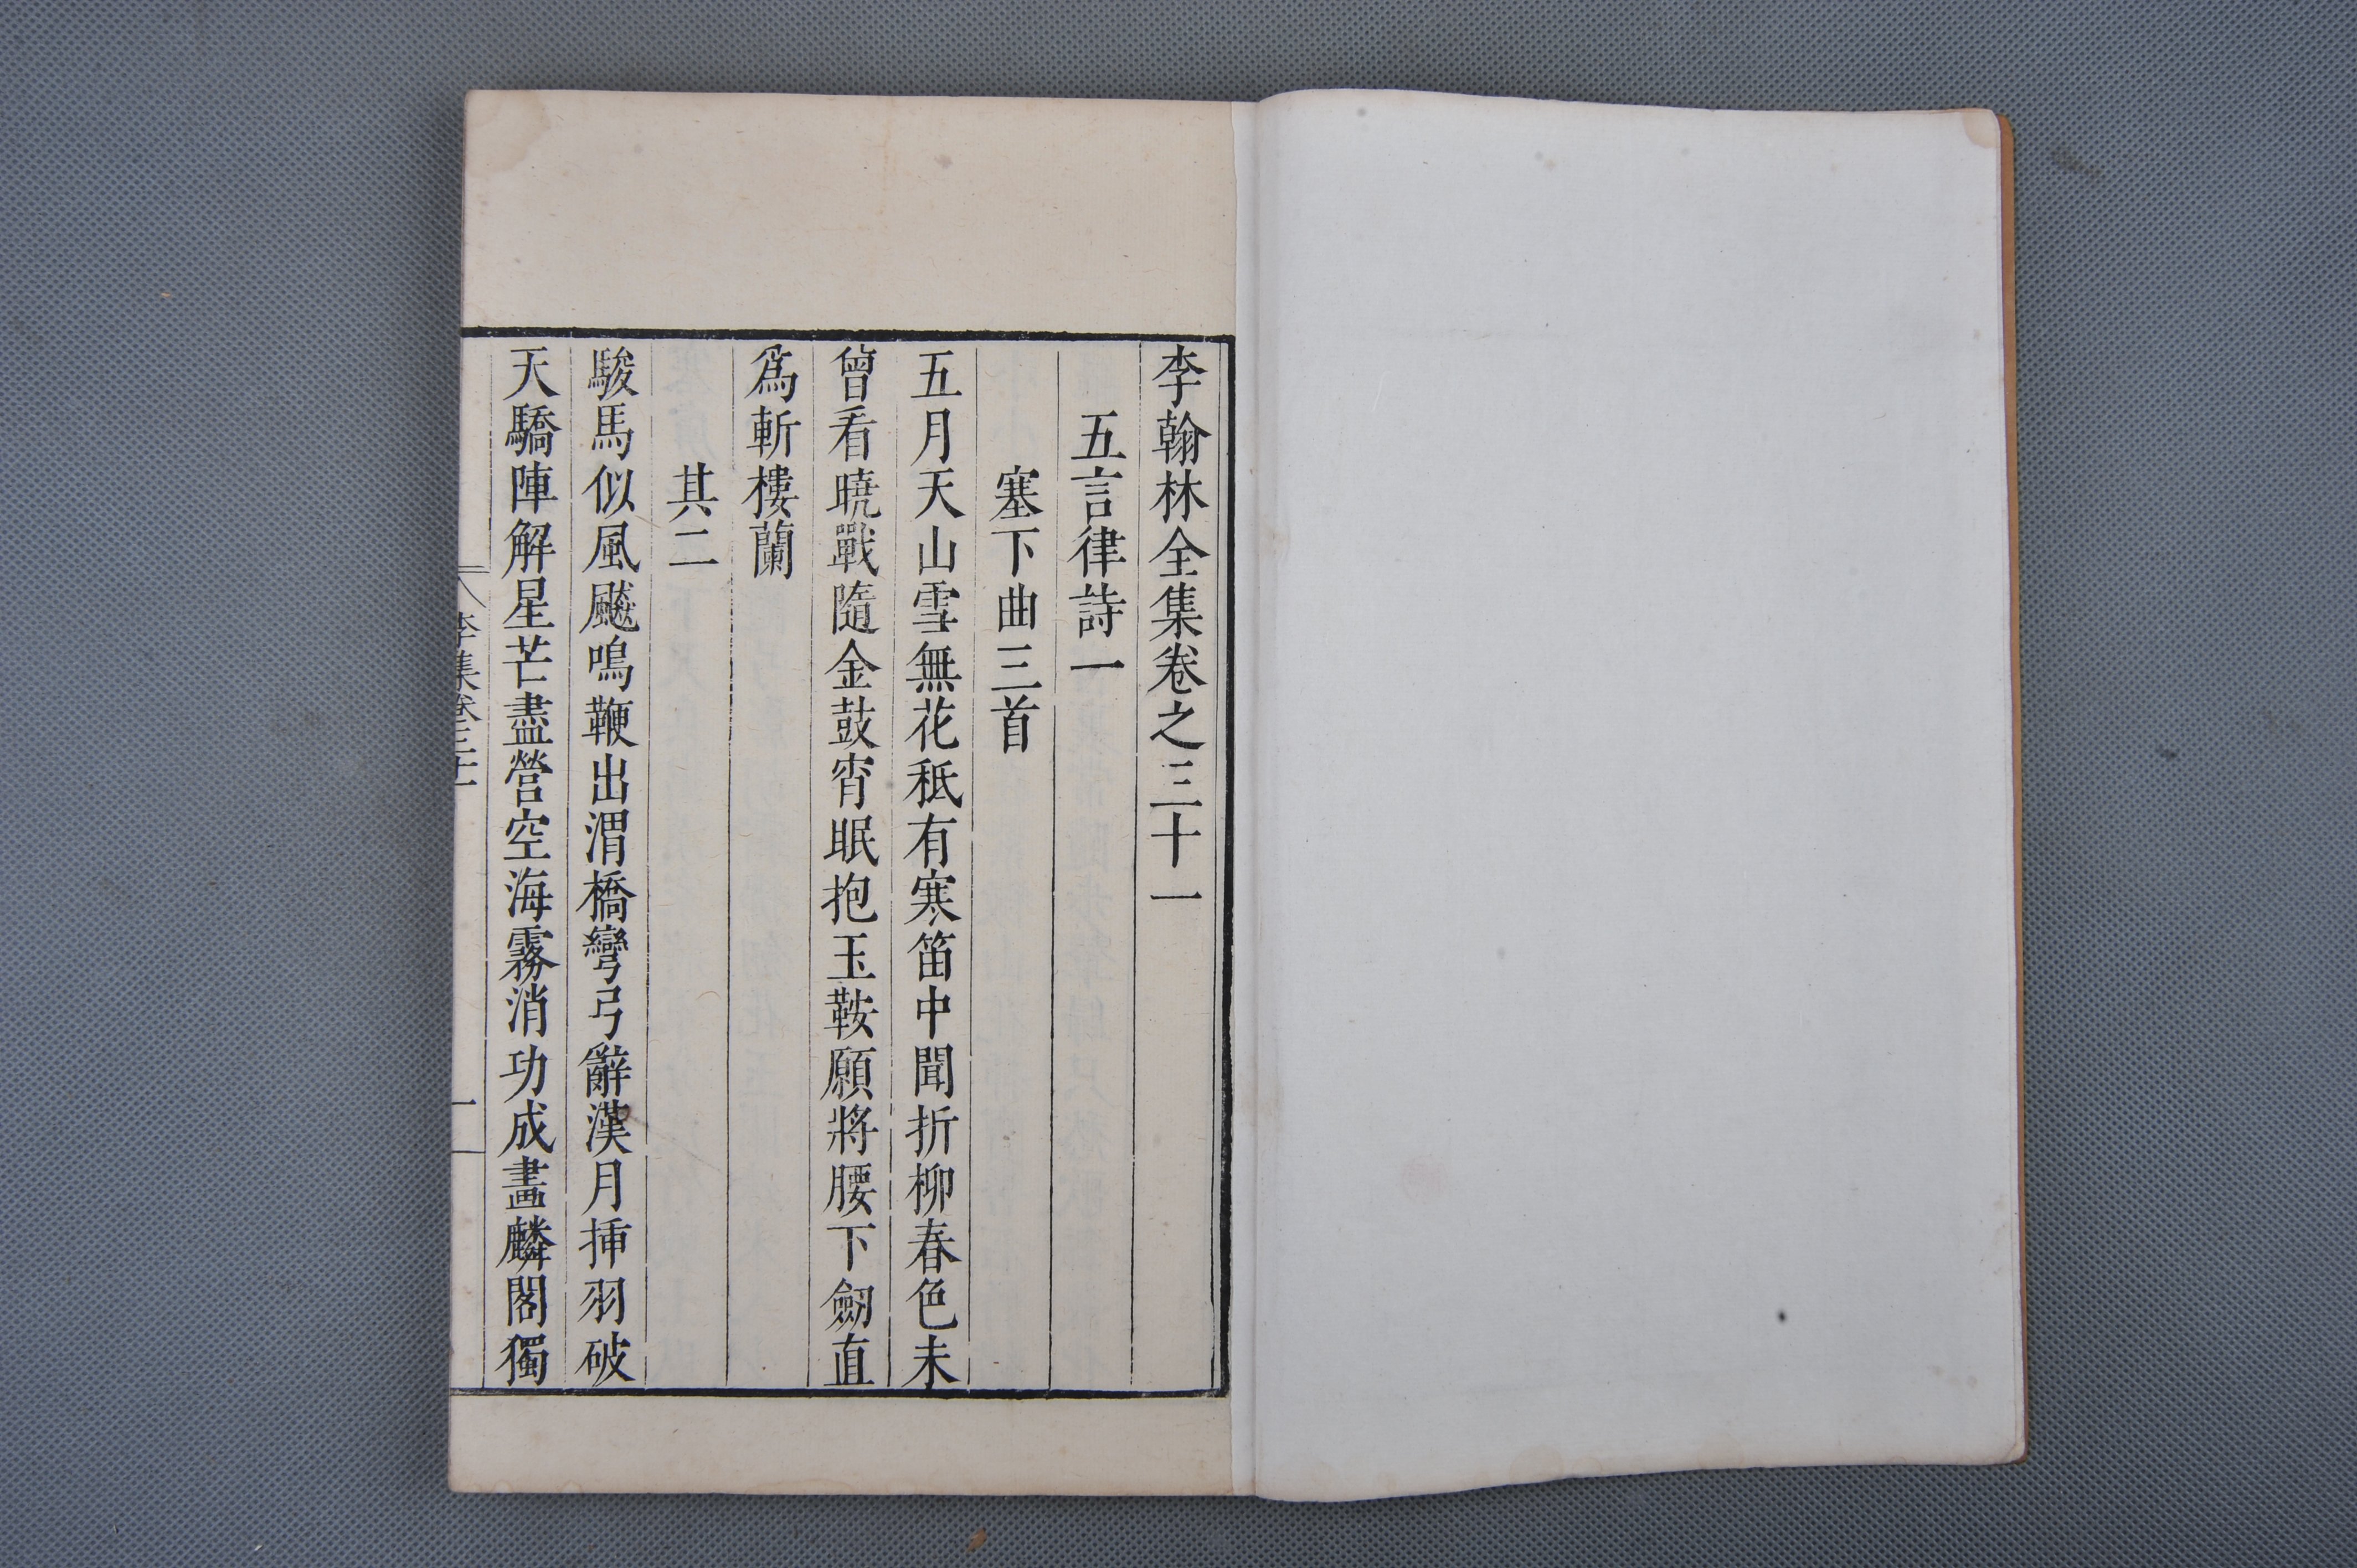 李翰林全集卷之三十一
五言律詩一
塞下曲三首
五月天山雪無花秖有寒笛中聞折柳春色未
曾看曉戰隨金鼓宵眠抱玉鞍願將腰下劒直
爲斬樓蘭
其二
駿馬似風飇鳴鞭出渭橋彎弓辭漢月揷羽破
天驕陣解星芒盡營空海霧消功成畫麟閣獨
李集卷三十一
一